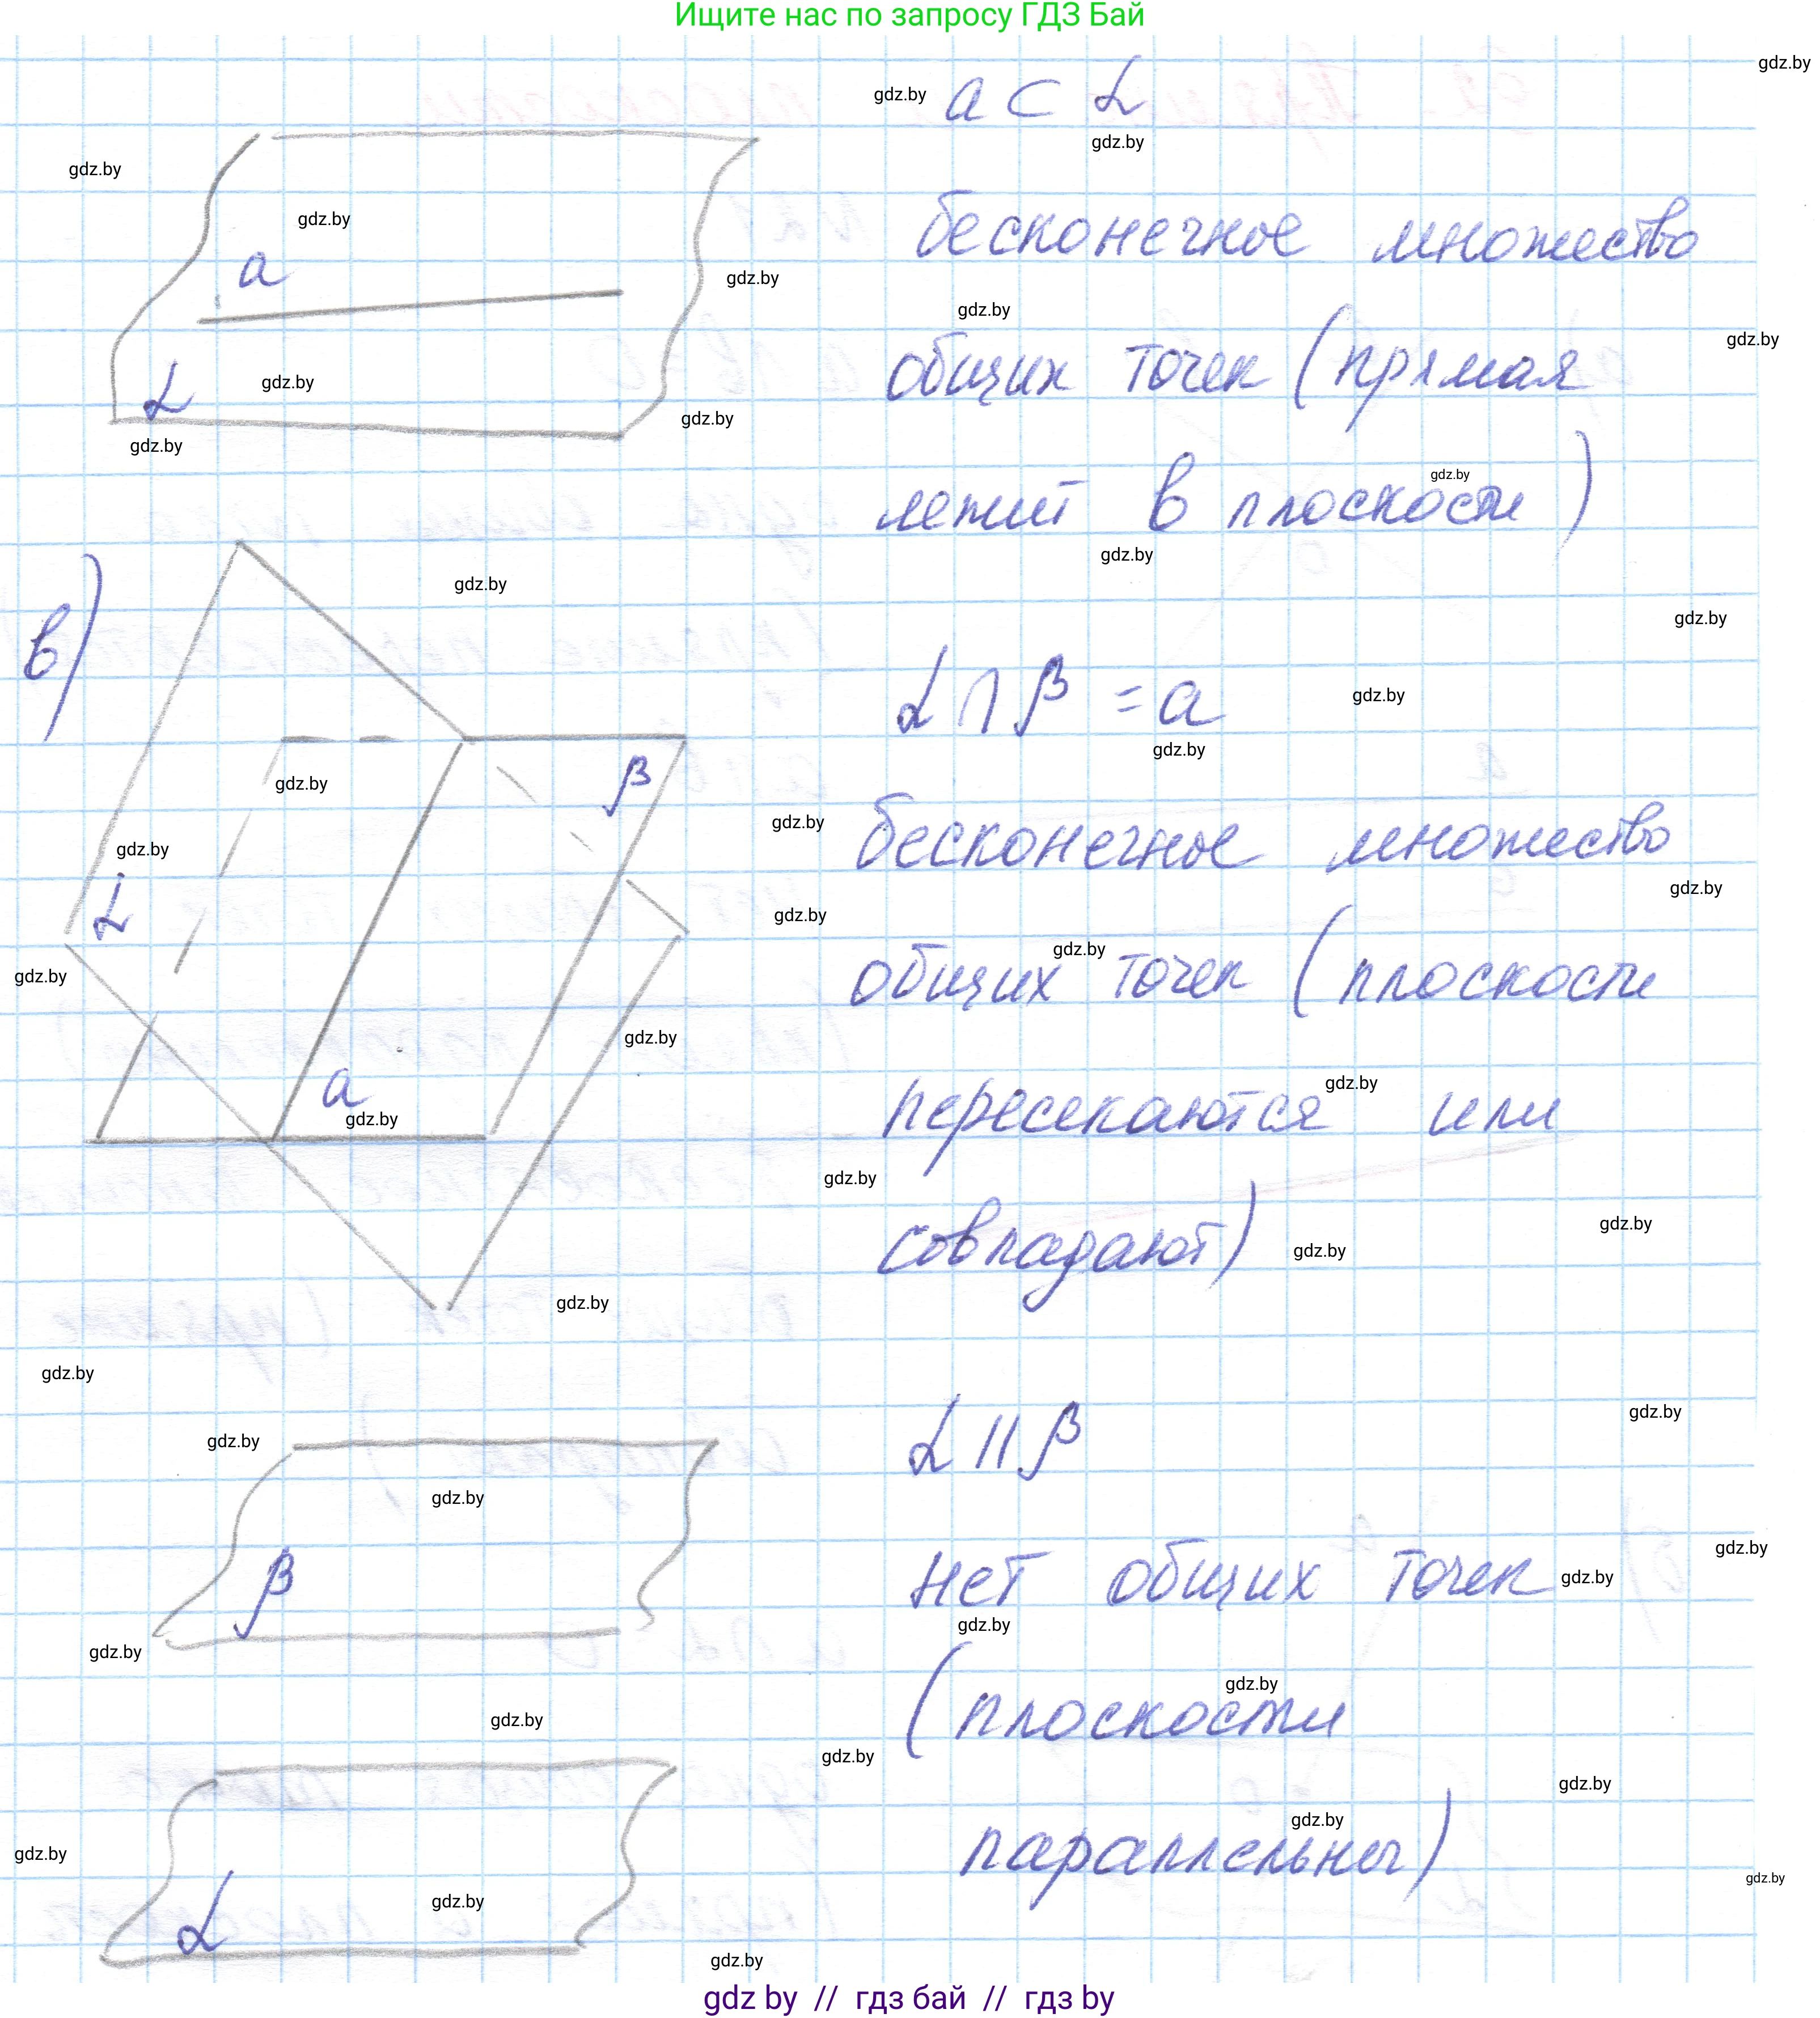 Ищите нас по запросу ГДЗ Бай
a ⊂ α
бесконечное множество
a
общих точек (прямая
α
лежит в плоскости)
в)
α ∩ β = a
β
бесконечное множество
α
общих точек (плоскости
a
пересекаются или
совпадают)
α || β
β
нет общих точек
(плоскости
α
параллельны)
gdz by // гдз бай // гдз by
gdz.by